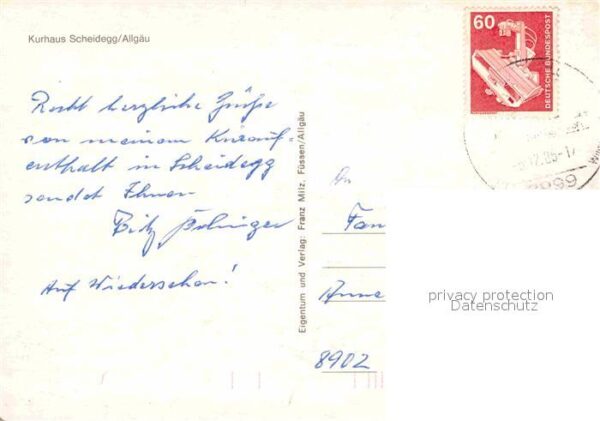 Kurhaus Scheidegg/Allgäu
Recht herzliche Grüße
von meinem Kurauf-
enthalt in Scheidegg
sendet Ihnen
Fritz
Auf Wiedersehen!
Eigentum und Verlag: Franz Milz, Füssen/Allgäu
60
DEUTSCHE BUNDESPOST
12.85-17
8999
An
Fam
Anna
8902
privacy protection
Datenschutz